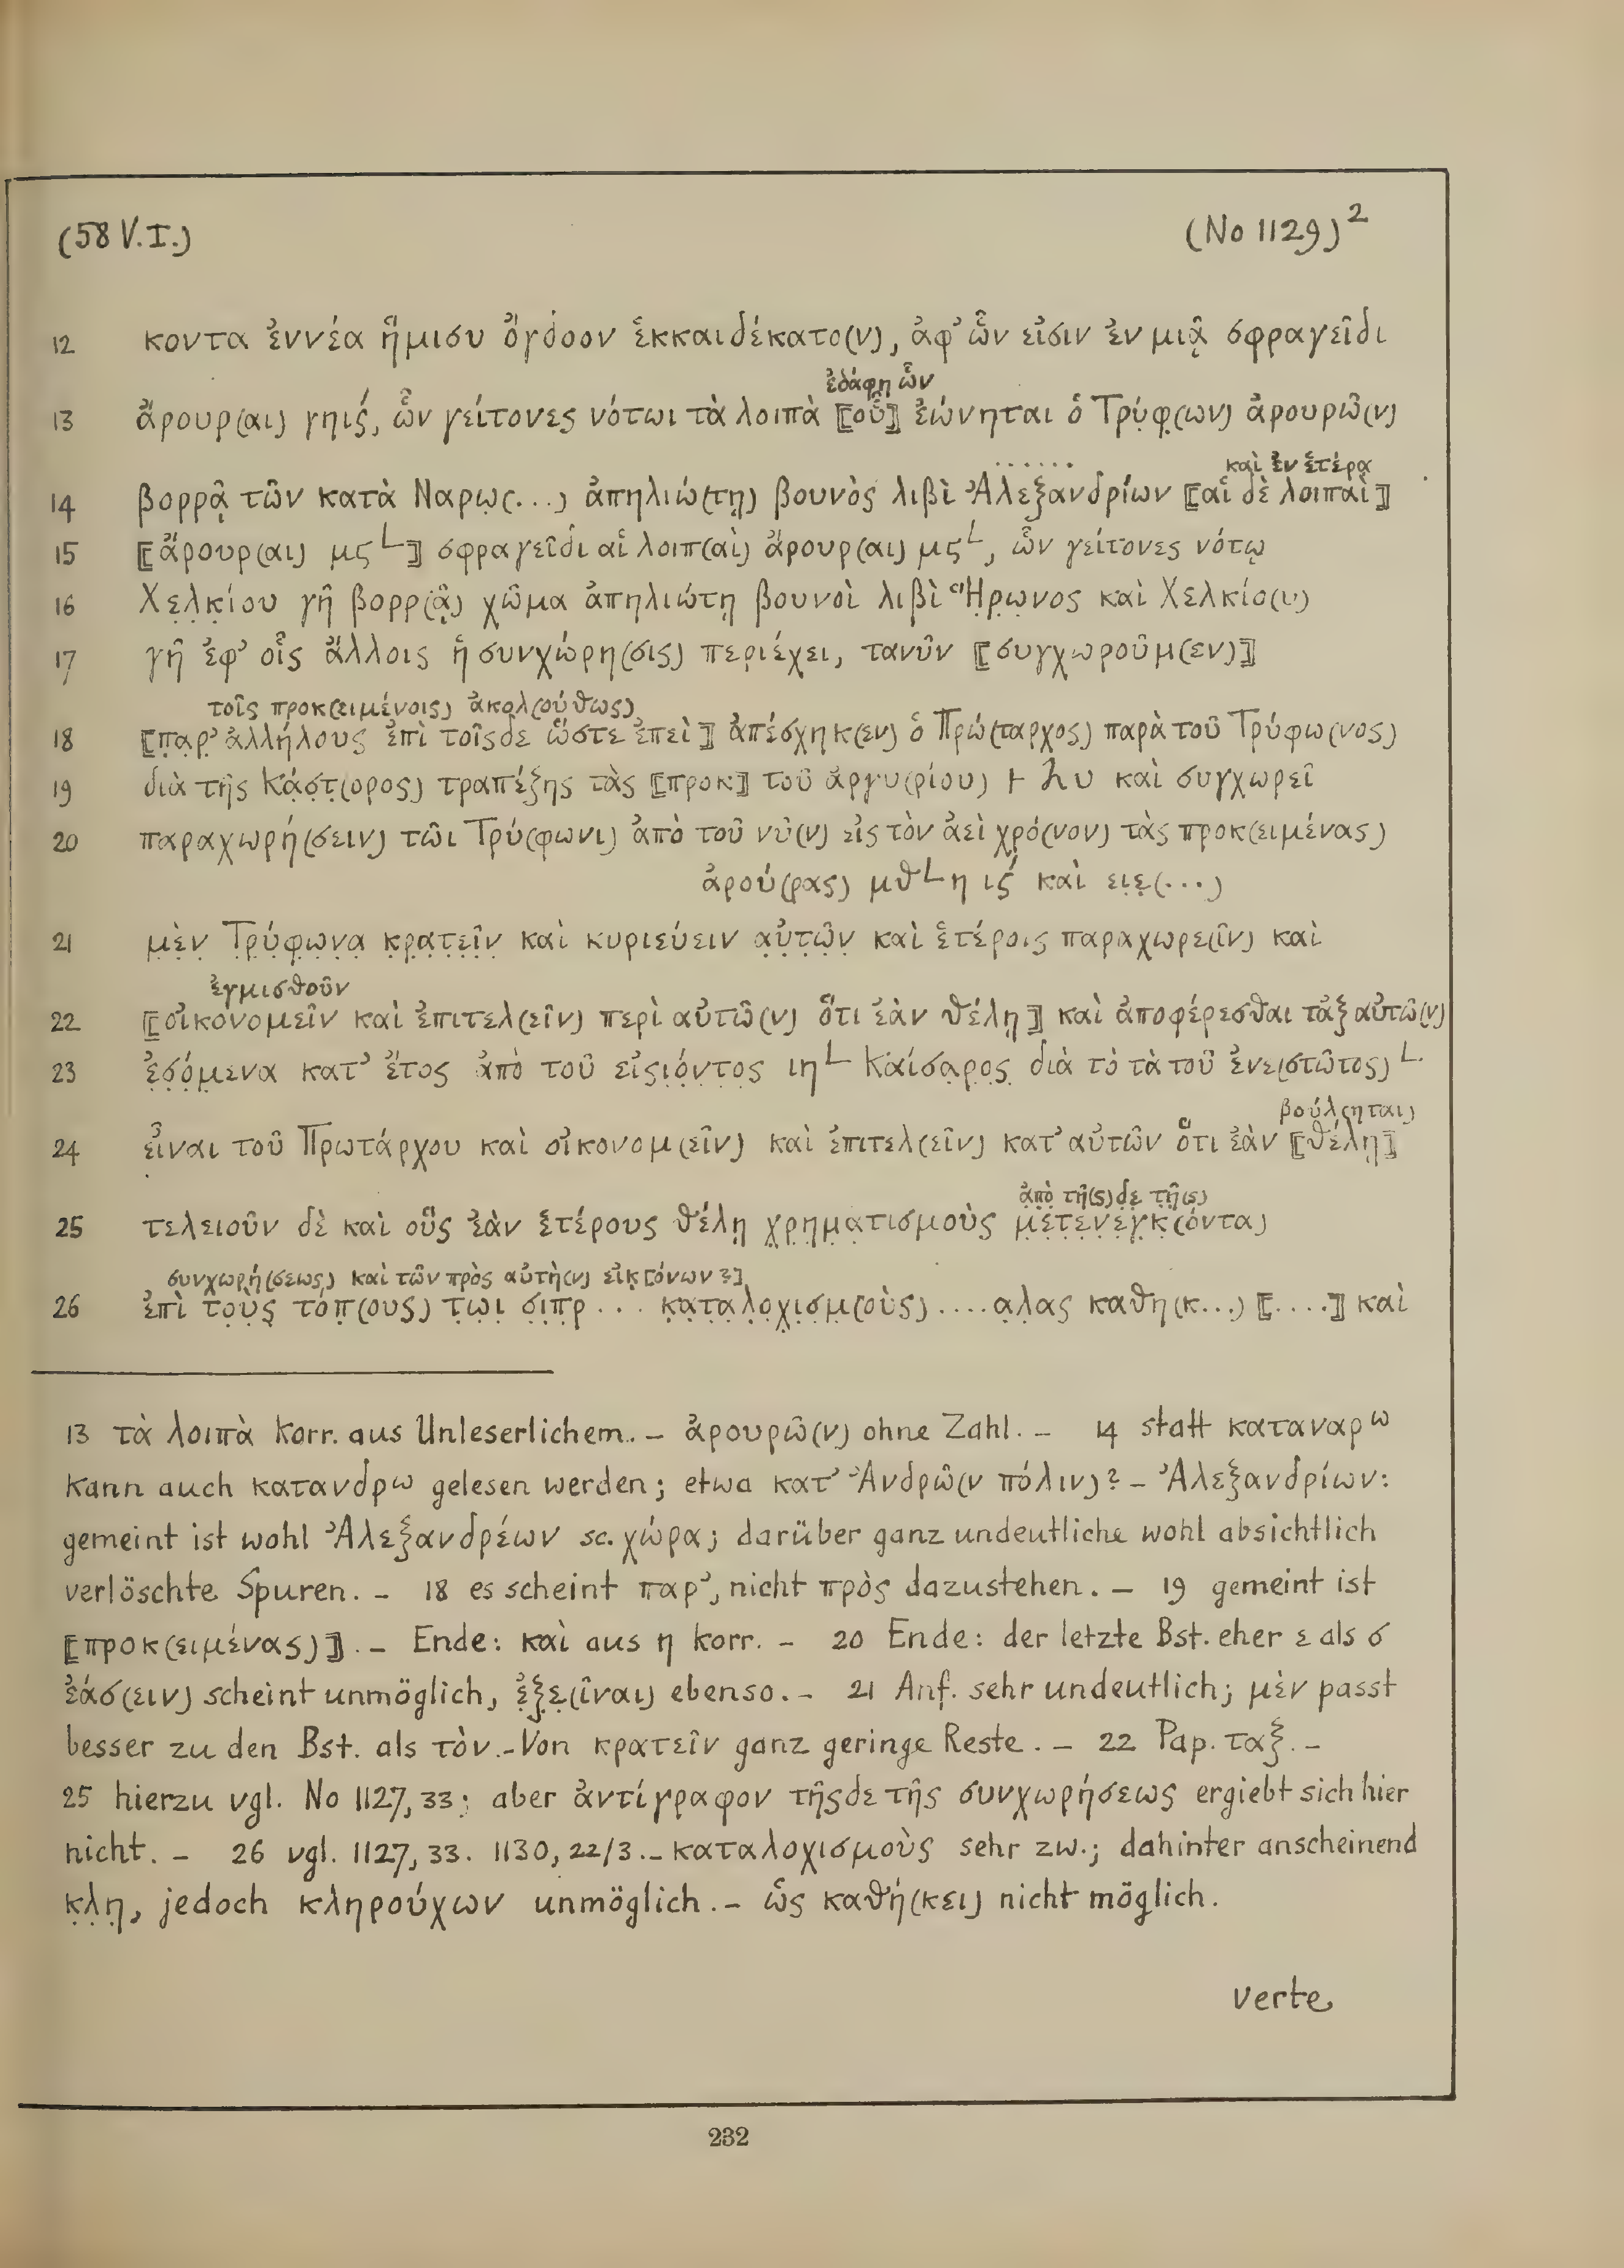 (58 V.I.) (No 1129)²
12 κοντα ἐννέα ἥμισυ ὄγδοον ἑκκαιδέκατο(ν), ἀφ' ὧν εἰσιν ἐν μιᾷ σφραγεῖδι
ἐδάφη ὧν
13 ἄρουρ(αι) γηιϛ́, ὧν γείτονες νότωι τὰ λοιπὰ ⟦οὗ⟧ ἐώνηται ὁ Τρύφ̣(ων) ἀρουρῶ(ν)
. . . . . . καὶ ἐν ἑτέρα
14 βορρᾷ τῶν κατὰ Ναρω̣(...) ἀπηλιώ(τῃ) βουνὸς λιβὶ Ἀλεξανδρίων ⟦αἱ δὲ λοιπαὶ⟧
15 ⟦ἄρουρ(αι) μϛ└⟧ σφραγεῖδι αἱ λοιπ(αὶ) ἄρουρ(αι) μϛ└, ὧν γείτονες νότῳ
16 Χε̣λ̣κ̣ίου γῆ βορρ(ᾷ) χῶμα ἀπηλιώτῃ βουνοὶ λιβὶ Ἥ̣ρ̣ω̣νος καὶ Χελκίο(υ)
17 γῆ ἐφ' οἷς ἄλλοις ἡ συνχώρη(σις) περιέχει, τανῦν ⟦συγχωροῦμ(εν)⟧
τοῖς προκ(ειμένοις) ἀκολ(ούθως)
18 ⟦π̣α̣ρ̣' ἀλλήλους ἐπὶ τοῖσδε ὥστε ἐπεὶ⟧ ἀπέσχηκ(εν) ὁ Πρώ(ταρχος) παρὰ τοῦ Τρύφω(νος)
19 διὰ τῆς Κά̣σ̣τ̣(ορος) τραπέζης τὰς ⟦προκ⟧ τοῦ ἀργυ(ρίου) 𐅂 λυ καὶ συγχωρεῖ
20 παραχωρή(σειν) τῶι Τρύ(φωνι) ἀπὸ τοῦ νῦ(ν) εἰς τὸν ἀεὶ χρό(νον) τὰς προκ(ειμένας)
ἀρού(ρας) μθ└η ιϛ́ καὶ ε̣ι̣ε̣(...)
21 μ̣ὲ̣ν̣ Τ̣ρ̣ύ̣φ̣ω̣ν̣α̣ κ̣ρ̣α̣τ̣ε̣ῖ̣ν̣ καὶ κυριεύειν α̣ὐ̣τ̣ῶ̣ν̣ καὶ ἑτέροις παραχωρε(ῖν) καὶ
ἐγμισθοῦν
22 ⟦οἰκονομεῖν καὶ ἐπιτελ(εῖν) περὶ αὐτῶ(ν) ὅτι ἐὰν θέλῃ⟧ καὶ ἀποφέρεσθαι τἀξ αὐτῶ(ν)
23 ἐ̣σ̣ό̣μ̣ενα κατ' ἔτος ἀπὸ τοῦ εἰσ̣ι̣ό̣ν̣τ̣ο̣ς̣ ιη└ Καίσα̣ρ̣ο̣ς̣ διὰ τὸ τὰ τοῦ ἐνε(στῶτος)└
βούλ(ηται)
24 ε̣ἶναι τοῦ Πρωτάρχου καὶ οἰκονομ(εῖν) καὶ ἐπιτελ(εῖν) κατ' αὐτῶν ὅτι ἐὰν ⟦θέλῃ⟧
ἀ̣π̣ὸ̣ τῆ(ς)δ̣ε̣ τ̣ῆ̣(ς)
25 τελειοῦν δὲ καὶ οὓς ἐὰν ἑτέρους θέλῃ χ̣ρ̣η̣μ̣α̣τισμοὺς μ̣ε̣τ̣ε̣ν̣ε̣γ̣κ̣(όντα)
συνχωρή(σεως) καὶ τῶν πρὸς αὐτὴ(ν) εἰκ̣[όνων ?]
26 ἐπὶ το̣ὺ̣ς̣ τόπ̣(ους) τ̣ω̣ι̣ σ̣ι̣π̣ρ̣ . . . κ̣α̣τ̣α̣λ̣ο̣χ̣ι̣σ̣μ̣(οὺς) ....α̣λ̣ας καθη(κ...) ⟦....⟧ καὶ
13 τὰ λοιπὰ Korr. aus Unleserlichem. – ἀρουρῶ(ν) ohne Zahl. – 14 statt καταναρω
kann auch κατανδρω gelesen werden; etwa κατ' Ἀνδρῶ(ν πόλιν)? – Ἀλεξανδρίων:
gemeint ist wohl Ἀλεξανδρέων sc. χώρα; darüber ganz undeutliche wohl absichtlich
verlöschte Spuren. – 18 es scheint παρ', nicht πρὸς dazustehen. – 19 gemeint ist
⟦προκ(ειμένας)⟧. – Ende: καὶ aus η korr. – 20 Ende: der letzte Bst. eher ε als σ
ἐάσ(ειν) scheint unmöglich, ἐ̣ξ̣ε̣(ῖναι) ebenso. – 21 Anf. sehr undeutlich; μὲν passt
besser zu den Bst. als τὸν. – Von κρατεῖν ganz geringe Reste. – 22 Pap. ταξ. –
25 hierzu vgl. No 1127,33; aber ἀντίγραφον τῆσδε τῆς συνχωρήσεως ergiebt sich hier
nicht. – 26 vgl. 1127,33. 1130,22/3. – καταλοχισμοὺς sehr zw.; dahinter anscheinend
κ̣λ̣η̣, jedoch κληρούχων unmöglich. – ὡς καθή(κει) nicht möglich.
verte
232